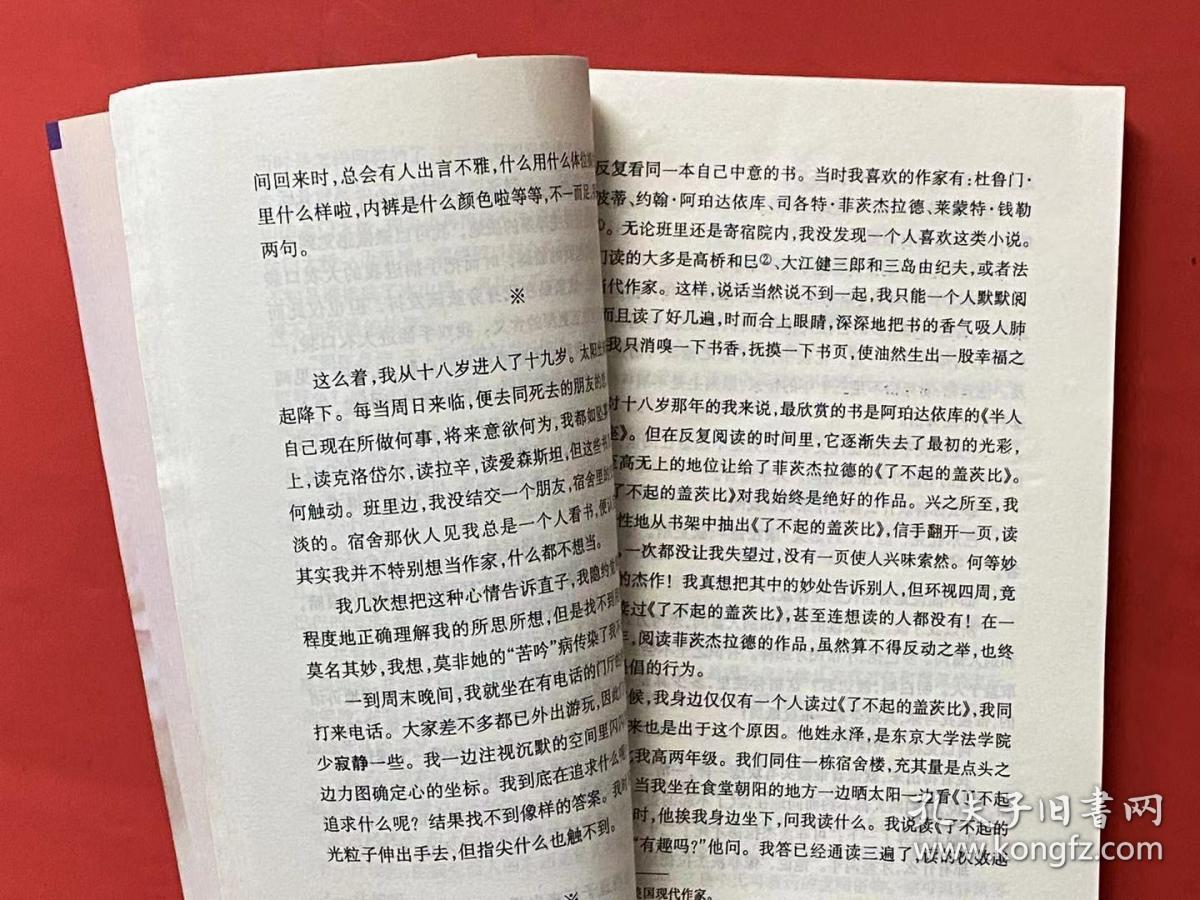 间回来时，总会有人出言不雅，什么用什么体位
里什么样啦，内裤是什么颜色啦等等，不一而足，
两句。
※
这么着，我从十八岁进入了十九岁。太阳出
起降下。每当周日来临，便去同死去的朋友的
自己现在所做何事，将来意欲何为，我都如坠
上，读克洛岱尔，读拉辛，读爱森斯坦，但这些书
何触动。班里边，我没结交一个朋友，宿舍里
淡的。宿舍那伙人见我总是一个人看书，便认
其实我并不特别想当作家，什么都不想当。
我几次想把这种心情告诉直子，我隐约
程度地正确理解我的所思所想，但是找不到
莫名其妙，我想，莫非她的“苦吟”病传染了我不
一到周末晚间，我就坐在有电话的门厅
打来电话。大家差不多都已外出游玩，因此
少寂静一些。我一边注视沉默的空间里闪
边力图确定心的坐标。我到底在追求什么呢
追求什么呢？结果找不到像样的答案。我
光粒子伸出手去，但指尖什么也触不到。
※
反复看同一本自己中意的书。当时我喜欢的作家有：杜鲁门·
皮蒂、约翰·阿珀达依库、司各特·菲茨杰拉德、莱蒙特·钱勒
①。无论班里还是寄宿院内，我没发现一个人喜欢这类小说。
们读的大多是高桥和巳②、大江健三郎和三岛由纪夫，或者法
当代作家。这样，说话当然说不到一起，我只能一个人默默阅
而且读了好几遍，时而合上眼睛，深深地把书的香气吸入肺
我只消嗅一下书香，抚摸一下书页，便油然生出一股幸福之
对十八岁那年的我来说，最欣赏的书是阿珀达依库的《半人
》。但在反复阅读的时间里，它逐渐失去了最初的光彩，
至高无上的地位让给了菲茨杰拉德的《了不起的盖茨比》。
了不起的盖茨比》对我始终是绝好的作品。兴之所至，我
性地从书架中抽出《了不起的盖茨比》，信手翻开一页，读
，一次都没让我失望过，没有一页使人兴味索然。何等妙
的杰作！我真想把其中的妙处告诉别人，但环视四周，竟
读过《了不起的盖茨比》，甚至连想读的人都没有！在一
年，阅读菲茨杰拉德的作品，虽然算不得反动之举，也终
倡的行为。
候，我身边仅仅有一个人读过《了不起的盖茨比》，我同
来也是出于这个原因。他姓永泽，是东京大学法学院
比我高两年级。我们同住一栋宿舍楼，充其量是点头之
当我坐在食堂朝阳的地方一边晒太阳一边看《了不起
时，他挨我身边坐下，问我读什么。我说读《了不起的
“有趣吗？”他问。我答已经通读三遍了，读的次数越
美国现代作家。
孔夫子旧书网
www.kongfz.com